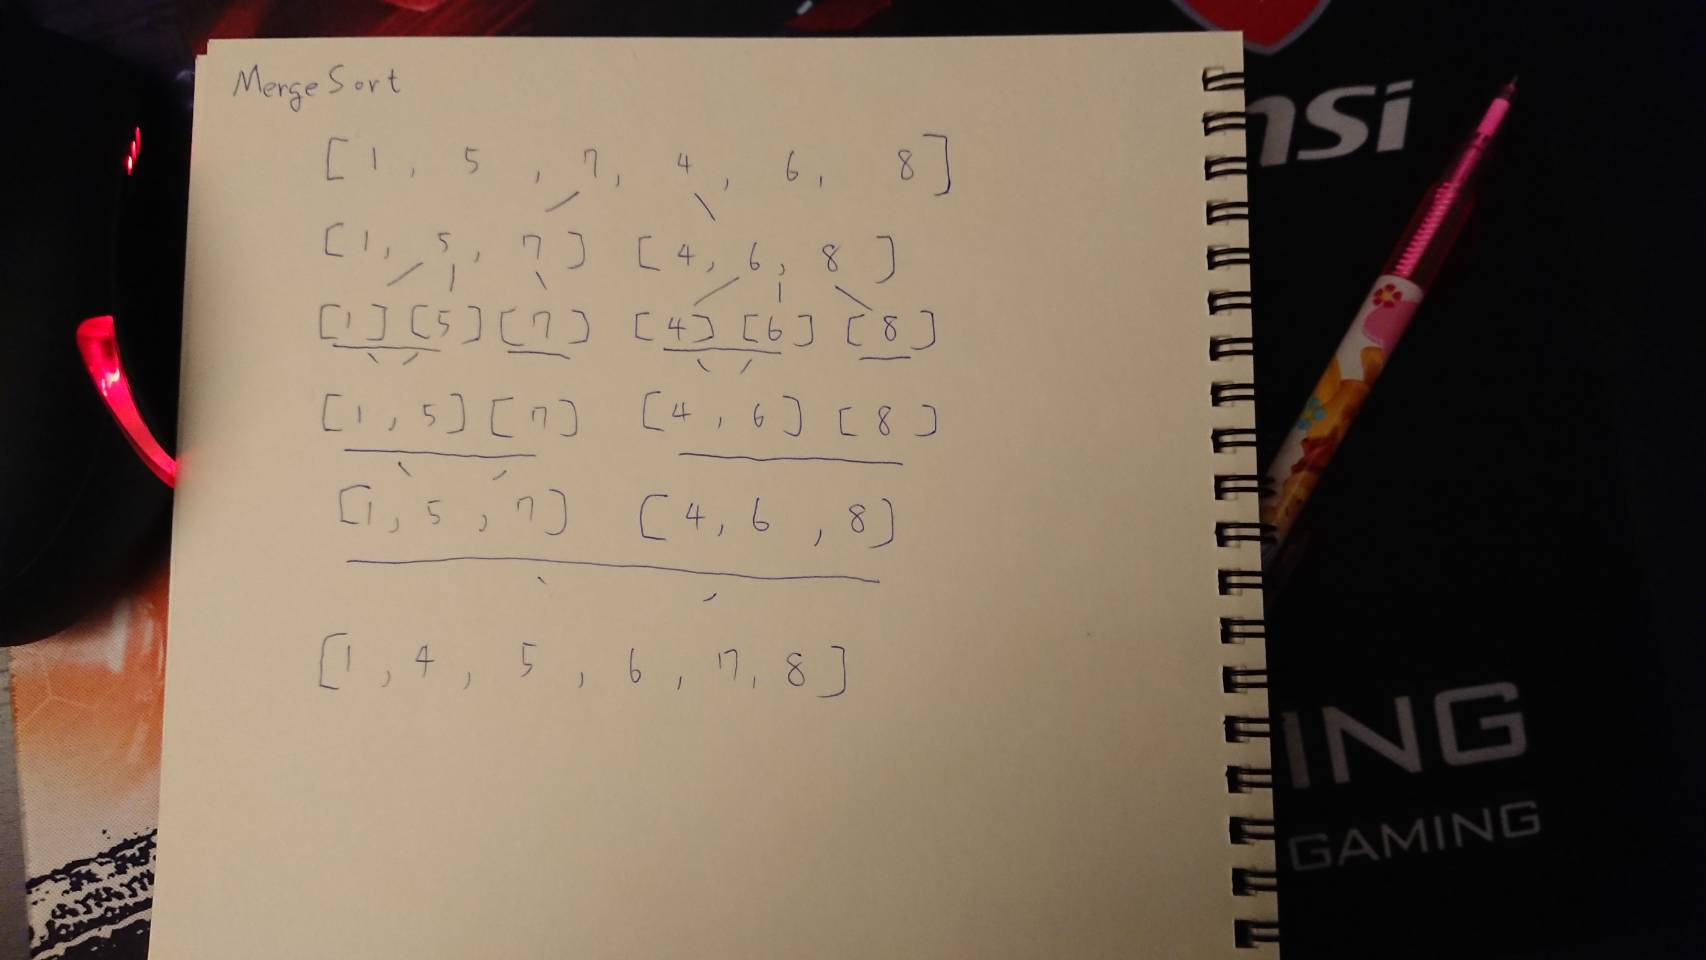 MergeSort
[1, 5, 7, 4, 6, 8]
[1, 5, 7] [4, 6, 8]
[1] [5] [7] [4] [6] [8]
[1, 5] [7] [4, 6] [8]
[1, 5, 7] [4, 6, 8]
[1, 4, 5, 6, 7, 8]
msi
ING
GAMING